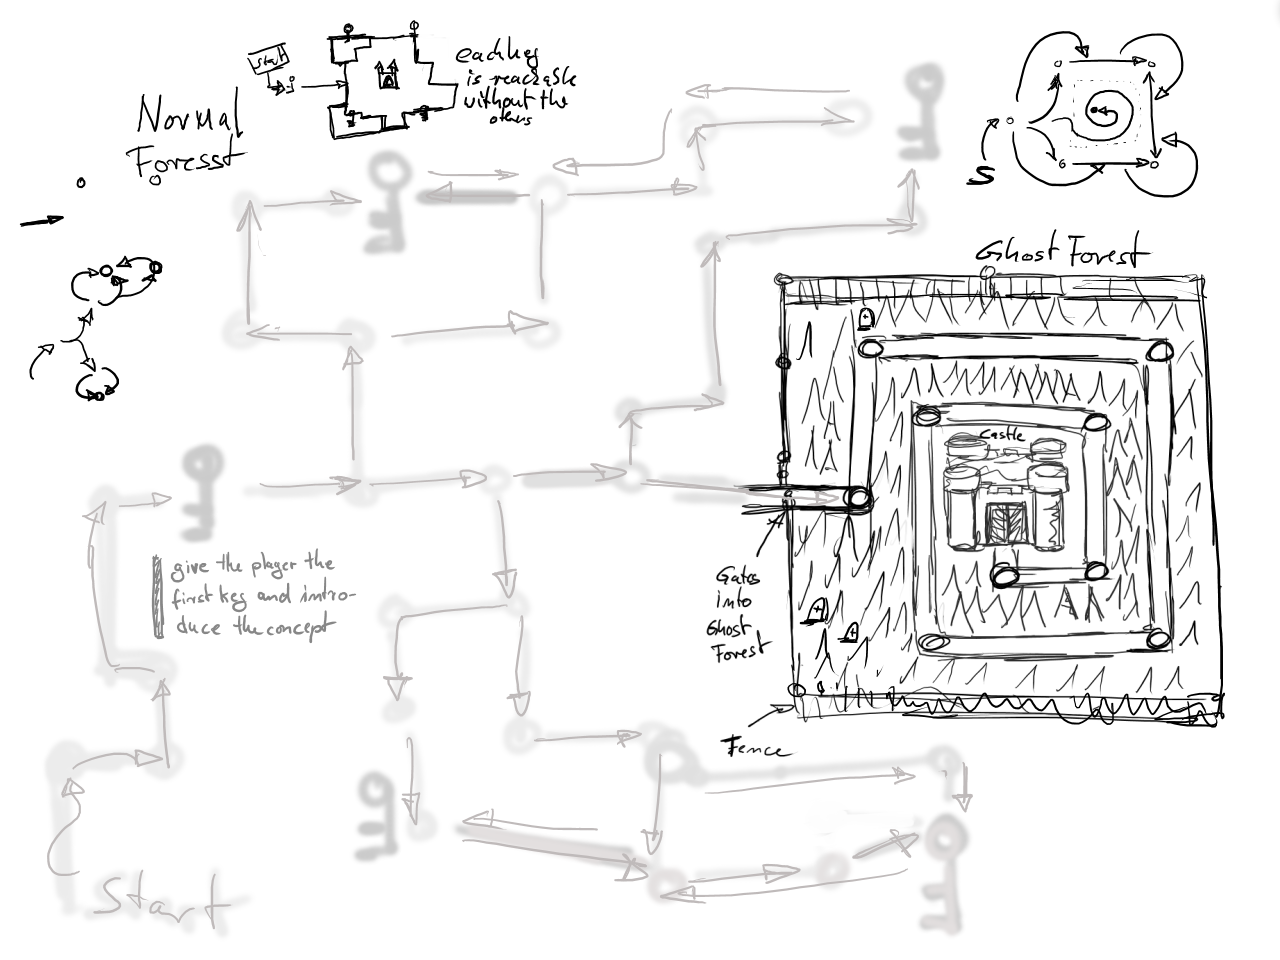 Start
each key
is reachable
without the
others
Normal
Foresst
S
Ghost Forest
Castle
give the player the
first key and intro-
duce the concept
Gates
into
Ghost
Forest
Fence
Start